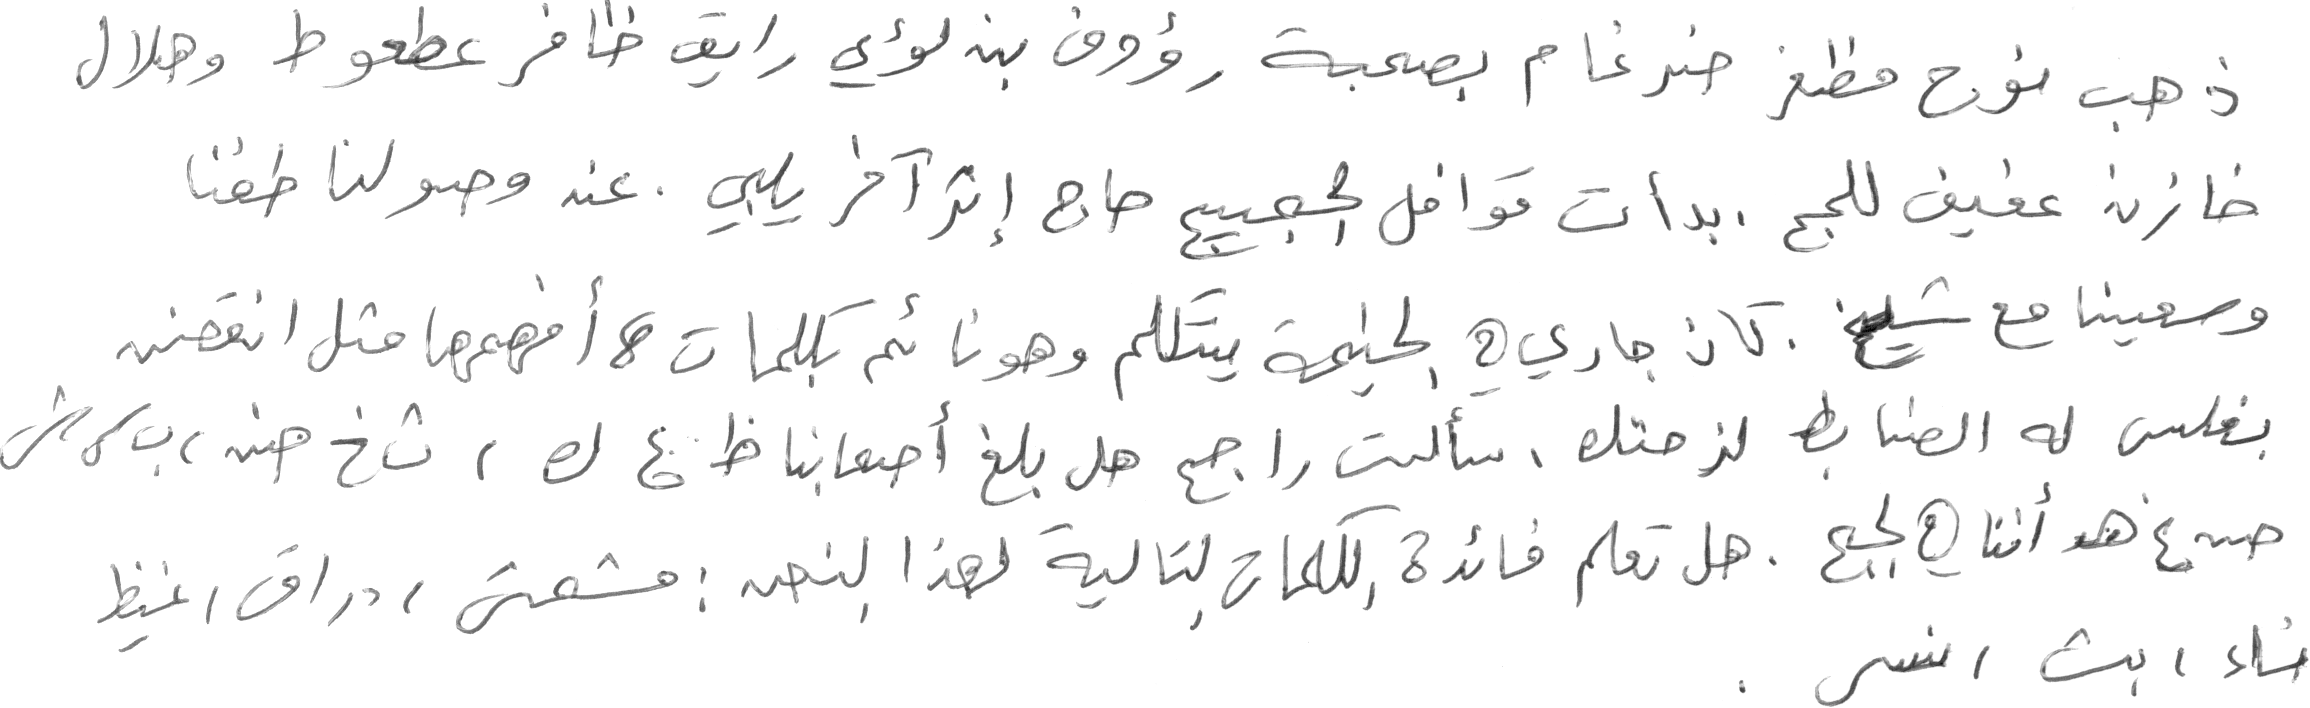 ذهب نوح مظفر ضرغام بصحبة رؤوف بن لؤي رايق ظافر عطعوط وهلال
خازن عفيف للحج . بدأت قوافل الحجيج حاج إثر آخر يلبي . عند وصولنا طفنا
وسعينا مع شيخ . كان جاري في الخيمة يتكلم وهو نائم بكلمات لا أفهمها مثل
بغلس له الضابط لزحتك ، سألت راجح هل بلغ أصحابنا ظ ، غ ك ، ث خ ص ، ب
أثناء في الحج . هل تعلم فائدة الكلمات التالية لهذا النص : مشمش ، دراق ، غيظ
شاء ، بث ،